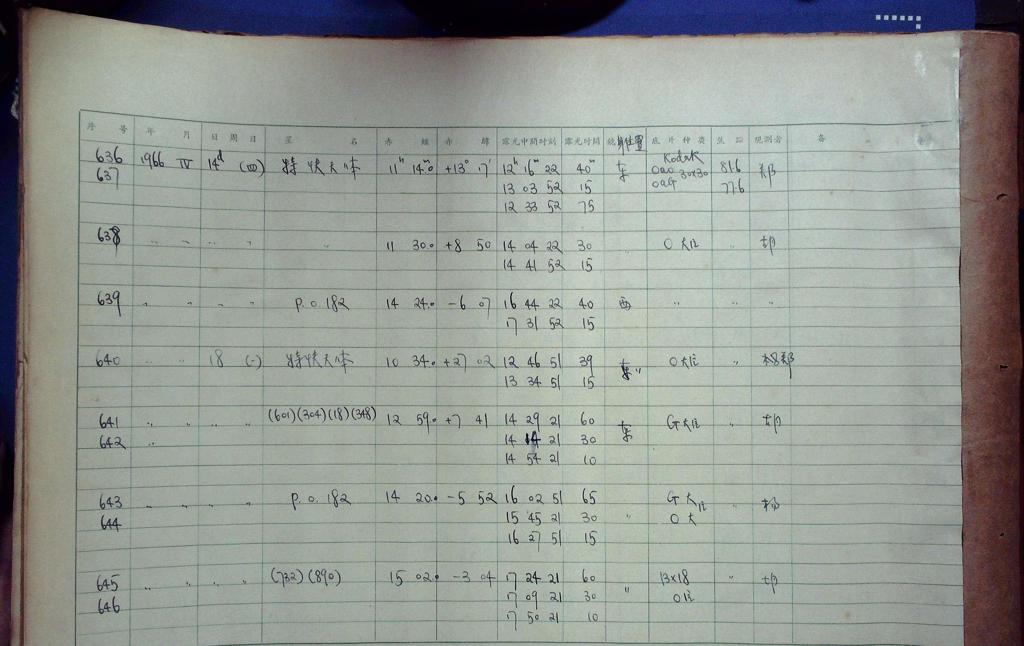 序 号 年 月 日 周日 星 名 赤 经 赤 纬 露光中间时刻 露光时间 位置 底片种类 观测者 备
636 1966 IV 14d (四) 特快天体 11h 14.0m +13° 7' 12h 16m 22 40m 东 Kodak 81.6 郑
637 13 03 52 15 OaO 30x30 77.6
12 33 52 75 OaG
638 " " " " " 11 30.0 +8 50 14 04 22 30 O "
14 41 52 15
639 " " " " P.O.182 14 24.0 -6 07 16 44 22 40 西 " " "
17 31 52 15
640 " " 18 (一) 特快天体 10 34.0 +27 02 12 46 51 39 东 O "
13 34 51 15
641 " " " " (601)(304)(18)(348) 12 59.0 +7 41 14 29 21 60 东 G "
642 " 14 14 21 30
14 54 21 10
643 " " " " P.O.182 14 20.0 -5 52 16 02 51 65 G 大 " 杨
644 15 45 21 30 " O 大
16 27 51 15
645 " " " " (732)(890) 15 02.0 -3 04 17 24 21 60 " 13x18 "
646 17 09 21 30 O
17 50 21 10